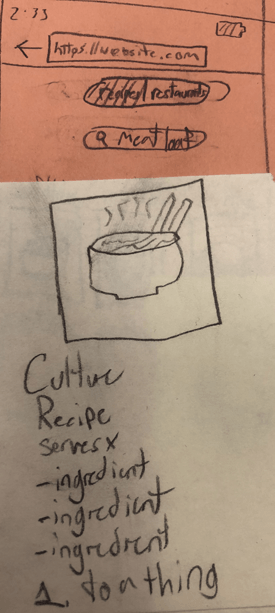 2:33
https://website.com
restaurants
Q meat loaf
Culture
Recipe
serves x
-ingredient
-ingredient
-ingredient
1. do a thing